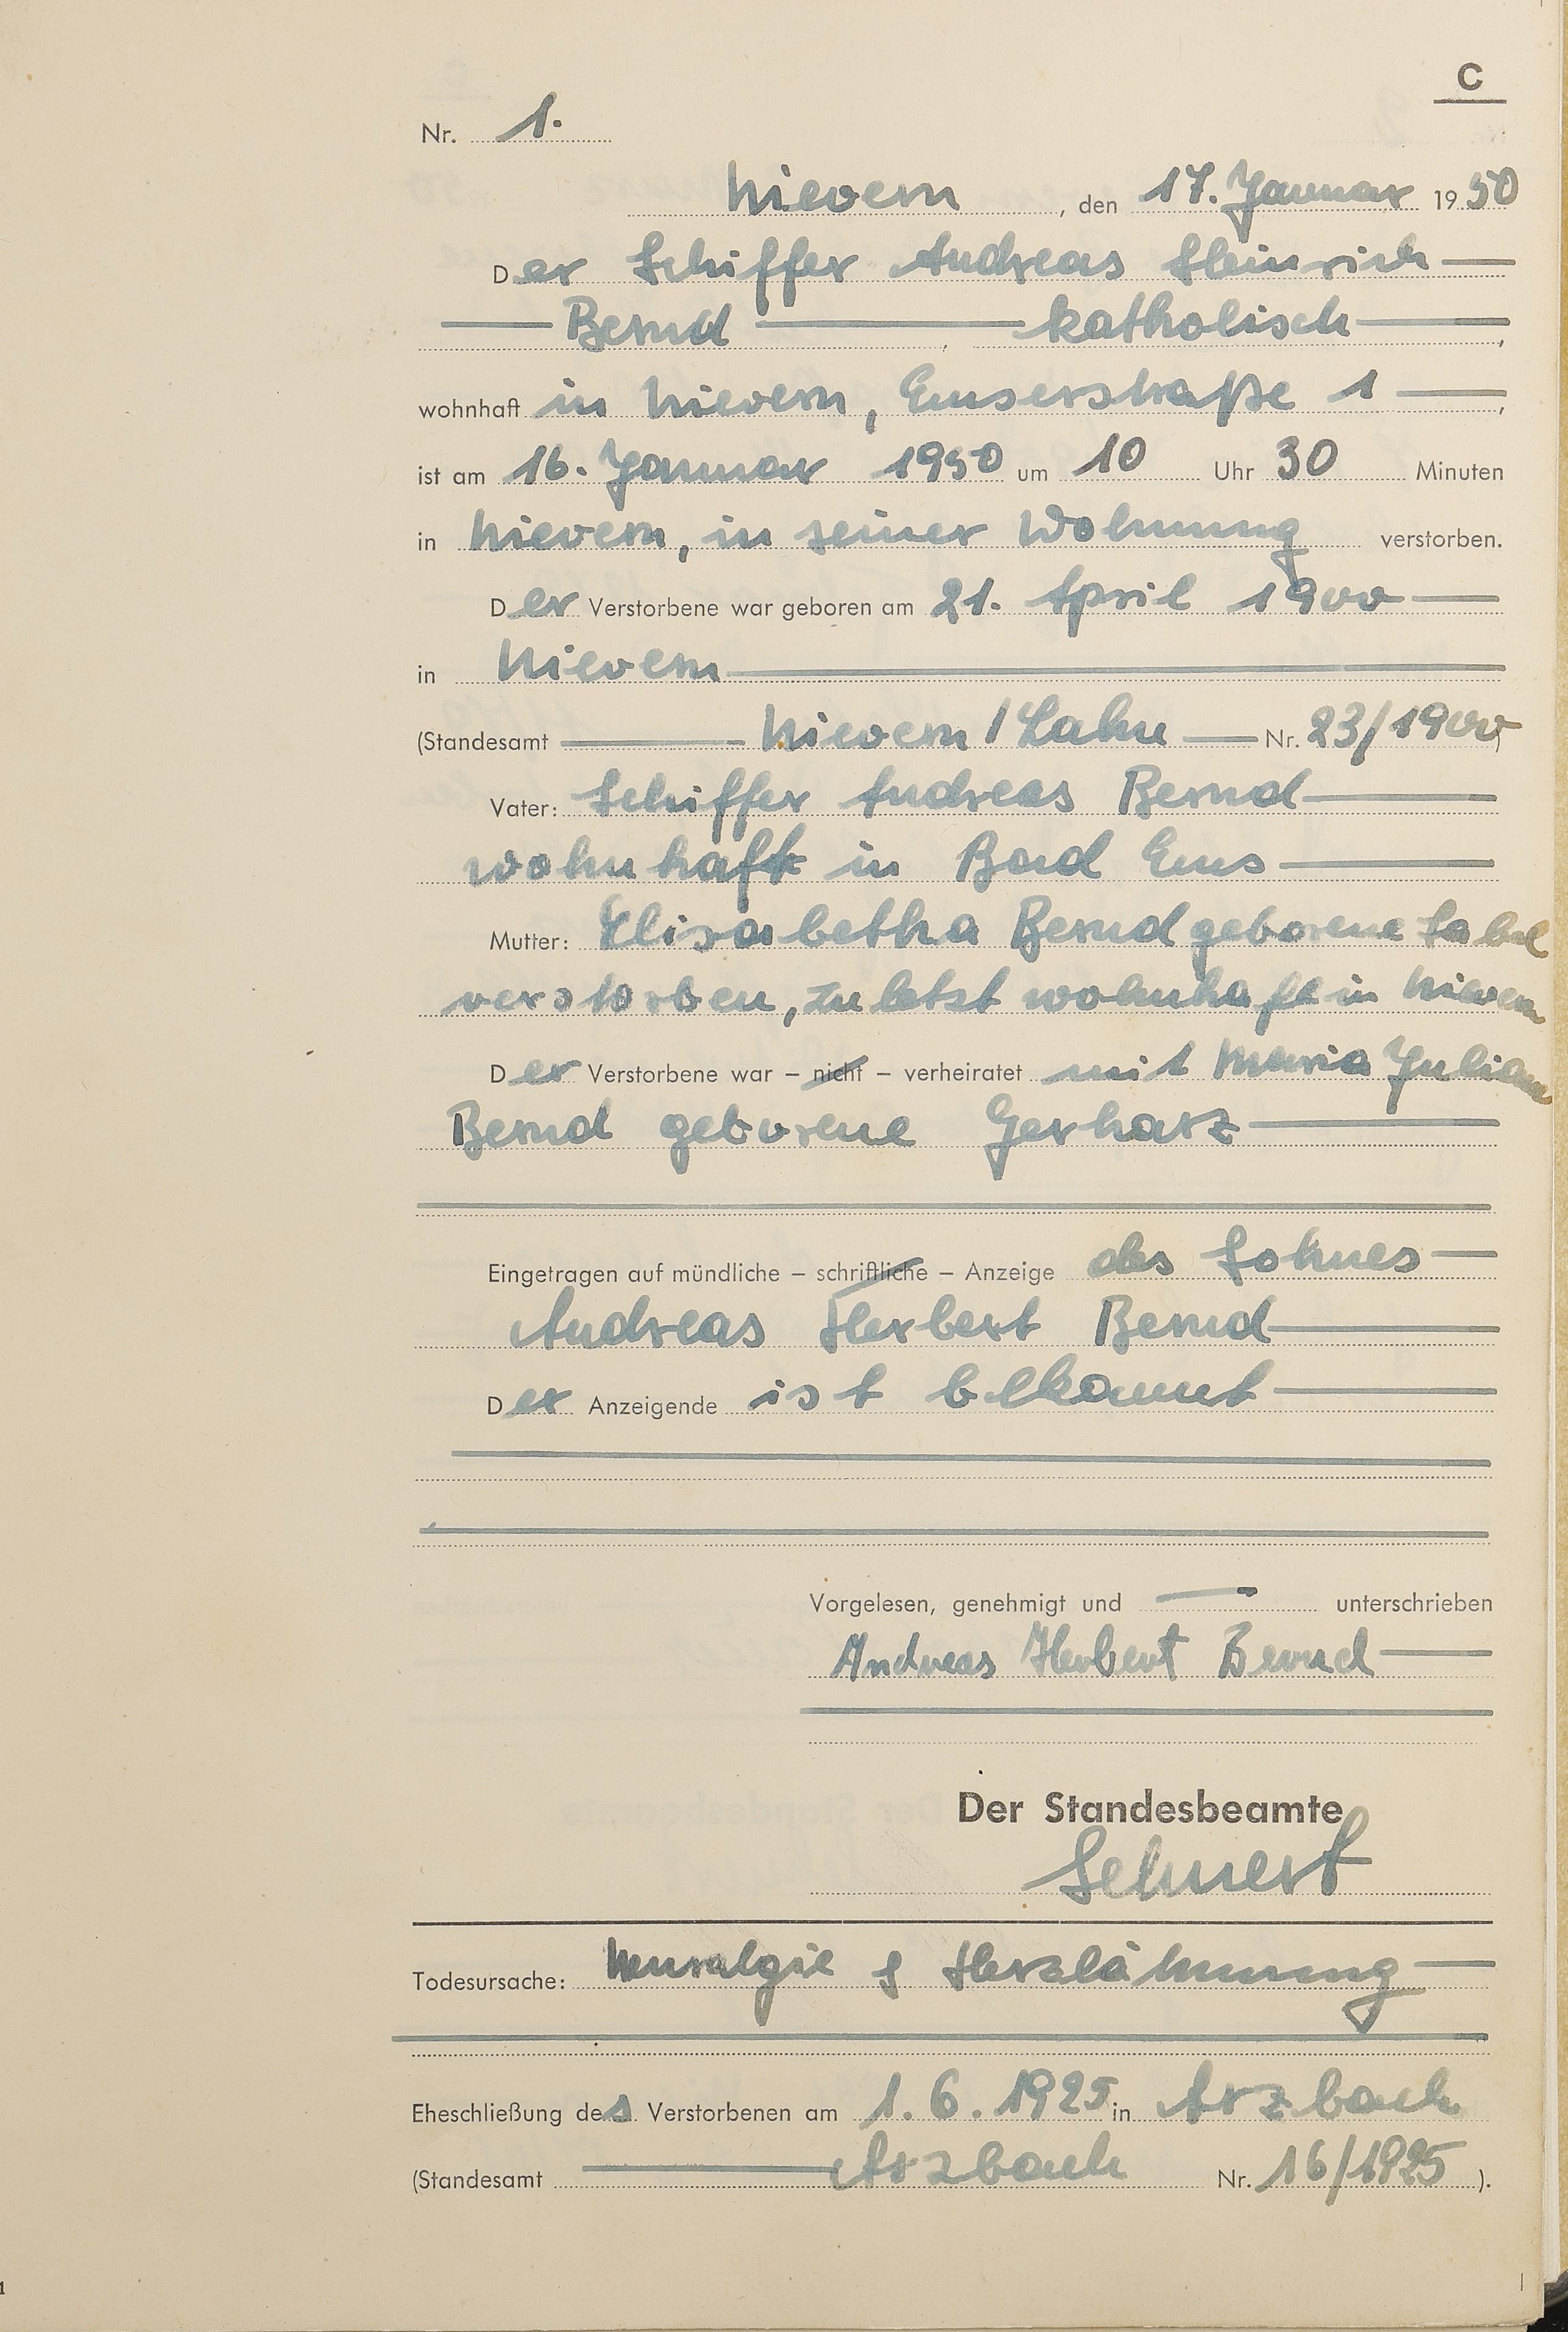 C
Nr. 1.
Nievern, den 17. Januar 1950
Der Schiffer Andreas Heinrich
Bernd, katholisch,
wohnhaft in Nievern, Emserstraße 1,
ist am 16. Januar 1950 um 10 Uhr 30 Minuten
in Nievern, in seiner Wohnung verstorben.
Der Verstorbene war geboren am 21. April 1900
in Nievern
(Standesamt Nievern / Lahn Nr. 23/1900)
Vater: Schiffer Andreas Bernd
wohnhaft in Bad Ems
Mutter: Elisabetha Bernd geborene Sabel
verstorben, zuletzt wohnhaft in Nievern
Der Verstorbene war – nicht – verheiratet mit Maria Juliana
Bernd geborene Gerharz
Eingetragen auf mündliche – schriftliche – Anzeige des Sohnes
Andreas Herbert Bernd
Der Anzeigende ist bekannt
Vorgelesen, genehmigt und unterschrieben
Andreas Herbert Bernd
Der Standesbeamte
Todesursache: Neuralgie & Herzlähmung
Eheschließung des Verstorbenen am 1. 6. 1925 in Arzbach
(Standesamt Arzbach Nr. 16/1925).
1